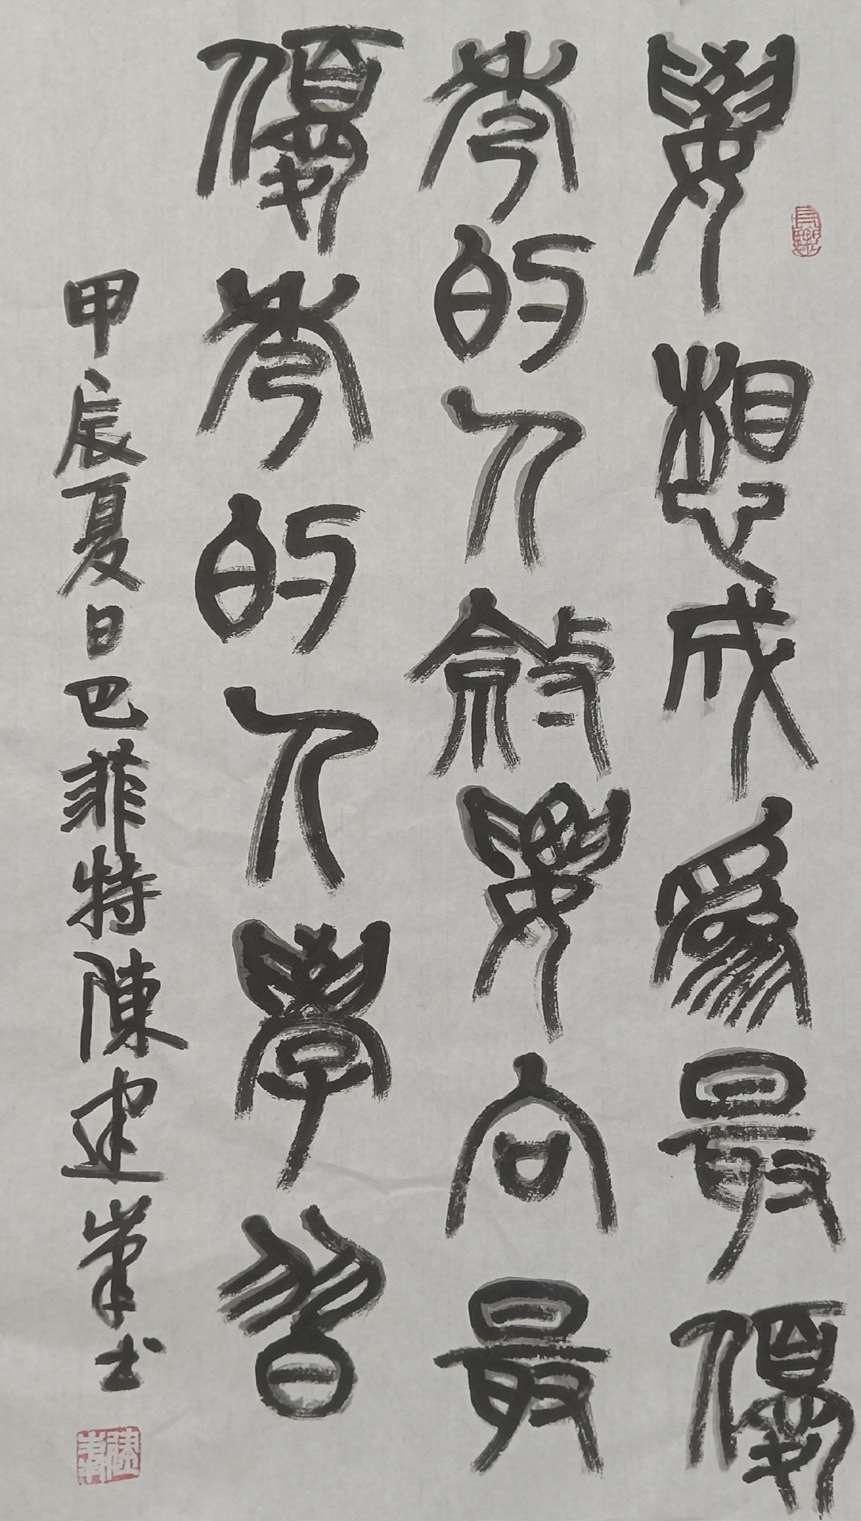 要想成為最優
秀的人就要向最
優秀的人學習
甲辰夏日巴菲特陳建業书